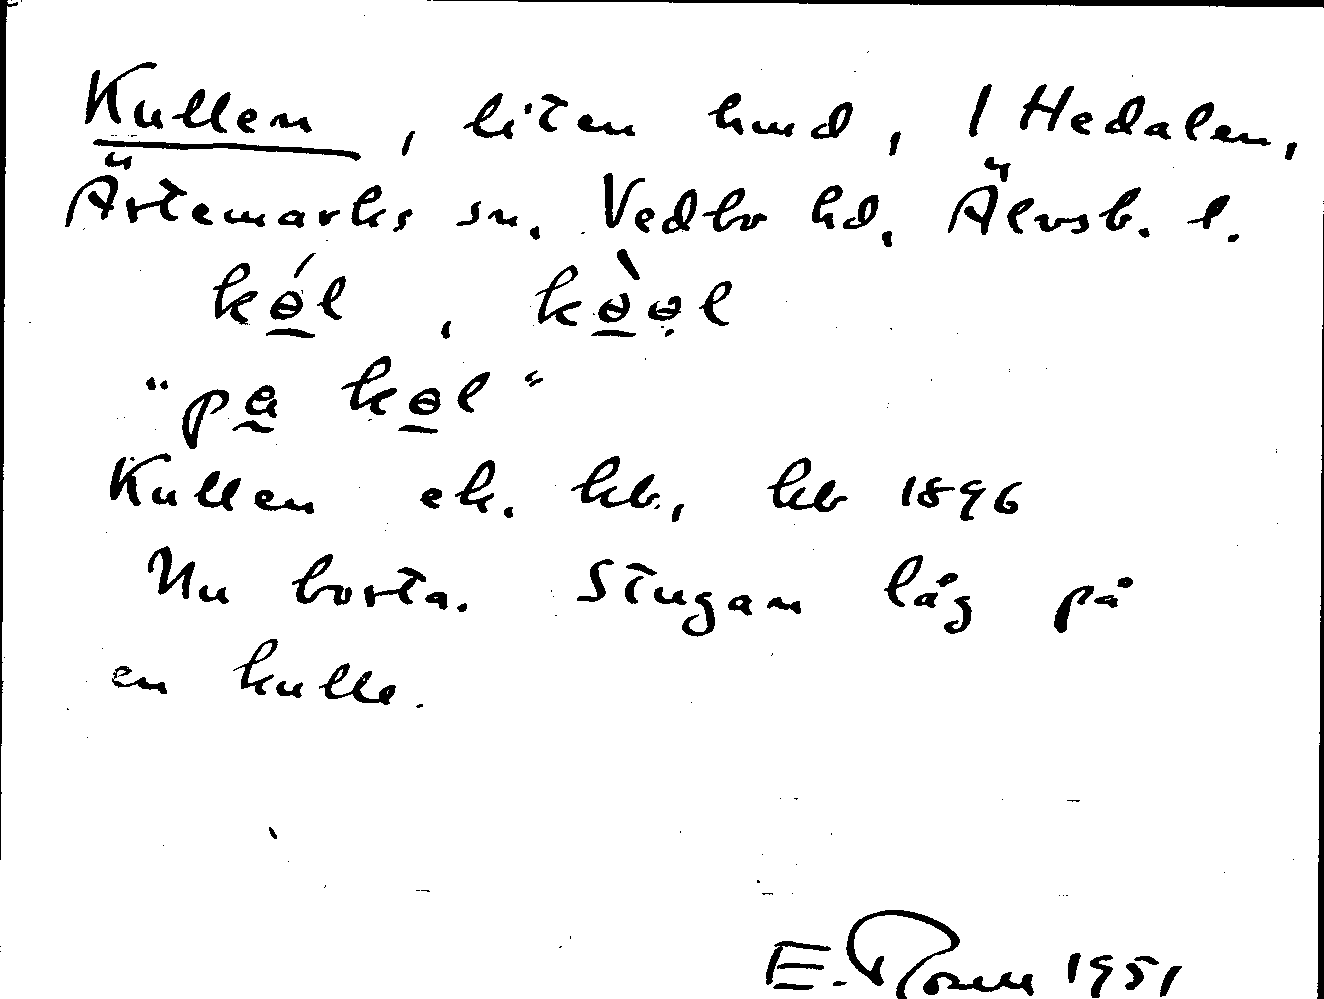 Kullen, liten hmd, 1 Hedalen,
Ärtemarks sn. Vedbo hd. Älvsb. l.
kɵ̲́l , kɵ̲̀ɵ̣l
"på kɵ̲l"
Kullen ek. kb., kb 1896
Nu borta. Stugan låg på
en kulle.
E. Rosen 1951